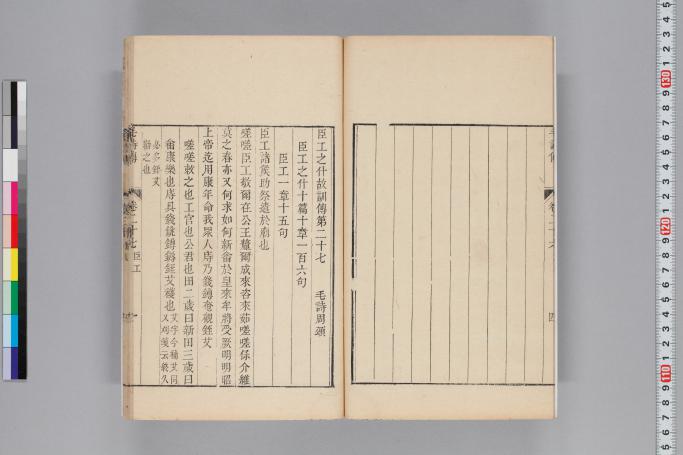 臣工之什故訓傳第二十七　毛詩周頌
臣工之什十篇十章一百六句
臣工一章十五句
臣工諸侯助祭遣於廟也
嗟嗟臣工敬爾在公王釐爾成來咨來茹嗟嗟保介維
莫之春亦又何求如何新畬於皇來牟將受厥明明昭
上帝迄用康年命我眾人庤乃錢鎛奄觀銍艾
嗟嗟敕之也工官也公君也田二歲曰新田三歲曰
畬康樂也庤具錢銚鎛鎒銍穫也
卷二十七
臣工
卷二十六
四
130
120
110